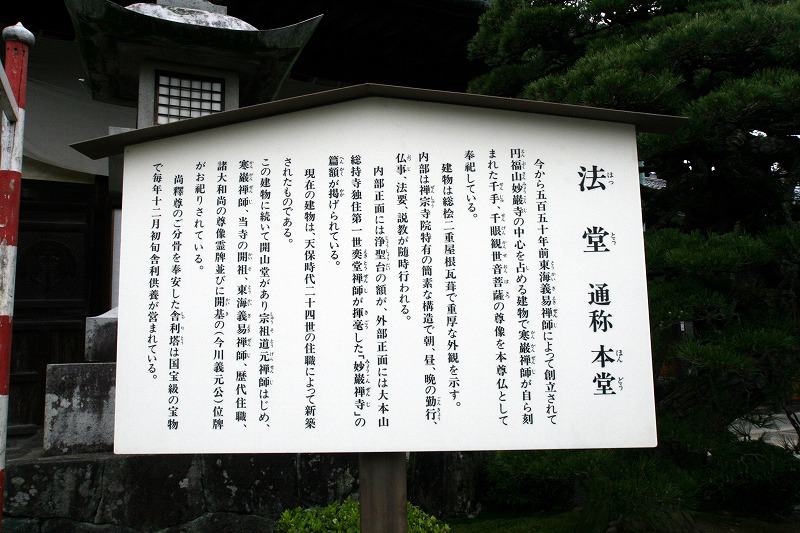 法堂 通称 本堂
今から五百五十年前東海義易禅師によって創立されて
円福山妙巌寺の中心を占める建物で寒巌禅師が自ら刻
まれた千手、千眼観世音菩薩の尊像を本尊仏として
奉祀している。
建物は総桧二重屋根瓦葺で重厚な外観を示す。
内部は禅宗寺院特有の簡素な構造で朝、昼、晩の勤行、
仏事、法要、説教が随時行われる。
内部正面には浄聖台の額が、外部正面には大本山
総持寺独住第一世奕堂禅師が揮毫した「妙巌禅寺」の
篇額が掲げられている。
現在の建物は、天保時代二十四世の住職によって新築
されたものである。
この建物に続いて開山堂があり宗祖道元禅師はじめ、
寒巌禅師、当寺の開祖、東海義易禅師、歴代住職、
諸大和尚の尊像霊牌並びに開基の(今川義元公)位牌
がお祀りされている。
尚釋尊のご分骨を奉安した舎利塔は国宝級の宝物
で毎年十二月初旬舎利供養が営まれている。